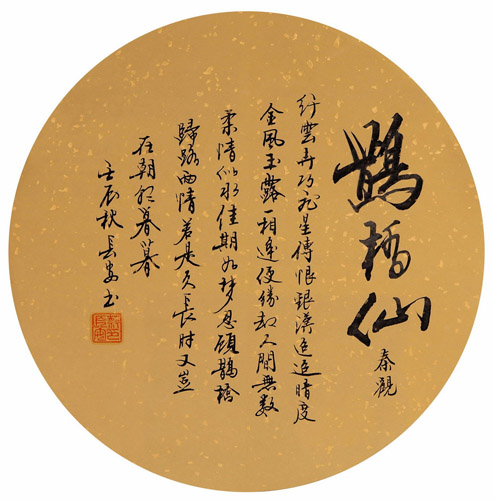 鵲橋仙
秦觀
纤雲弄巧飛星傳恨銀漢迢迢暗度
金風玉露一相逢便勝却人間無數
柔情似水佳期如梦忍顧鵲橋
歸路兩情若是久長时又豈
在朝々暮暮
壬辰秋長安书